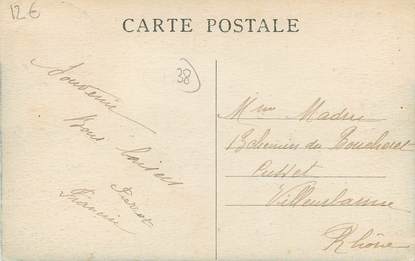 12€
CARTE POSTALE
38
Souvenir
Bons baisers
Francin
Mme Madru
13 chemin du
Cusset
Villeurbanne
Rhône